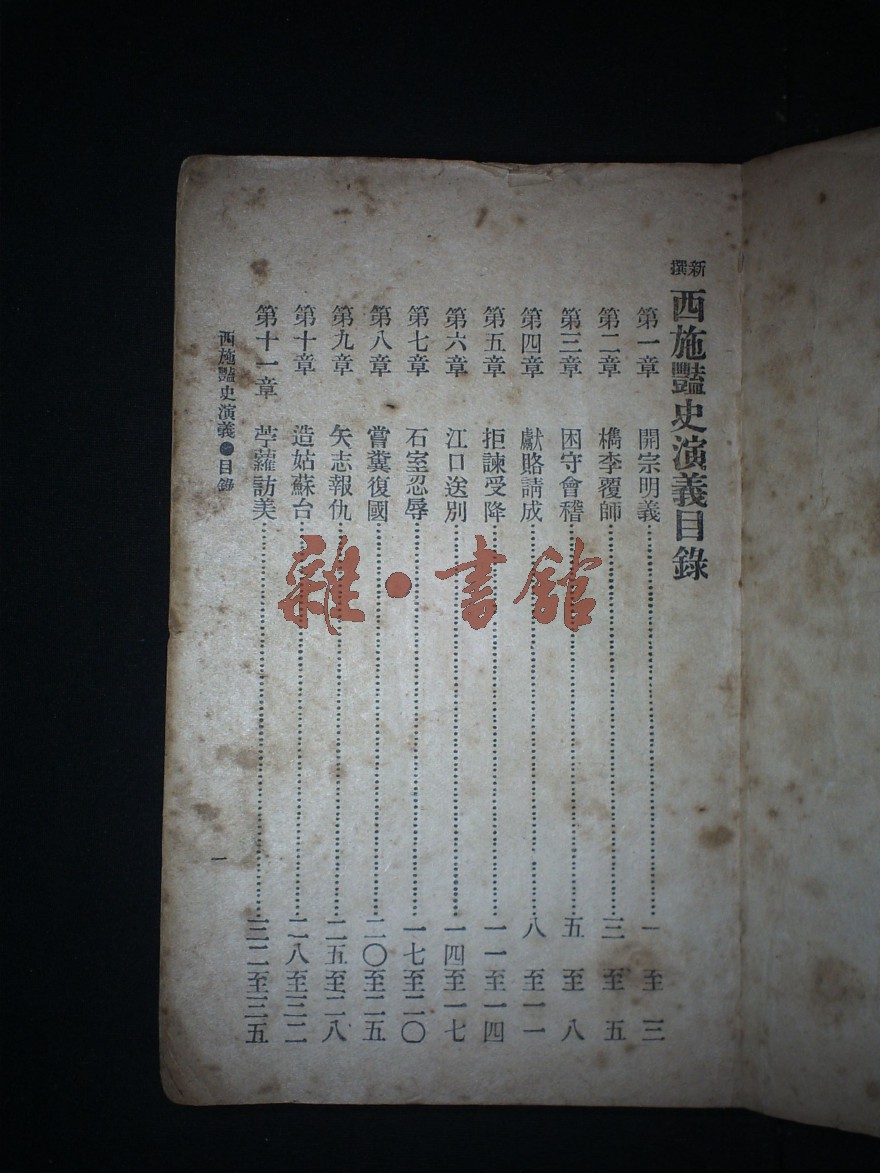 新撰 西施豔史演義目錄
第一章 開宗明義…………一至三
第二章 檇李覆師…………三至五
第三章 困守會稽…………五至八
第四章 獻賂請成…………八至一一
第五章 拒諫受降…………一一至一四
第六章 江口送別…………一四至一七
第七章 石室忍辱…………一七至二〇
第八章 嘗糞復國…………二〇至二五
第九章 矢志報仇…………二五至二八
第十章 造姑蘇台…………二八至三二
第十一章 苧蘿訪美…………三二至三五
西施豔史演義 目錄
一
雜·書館